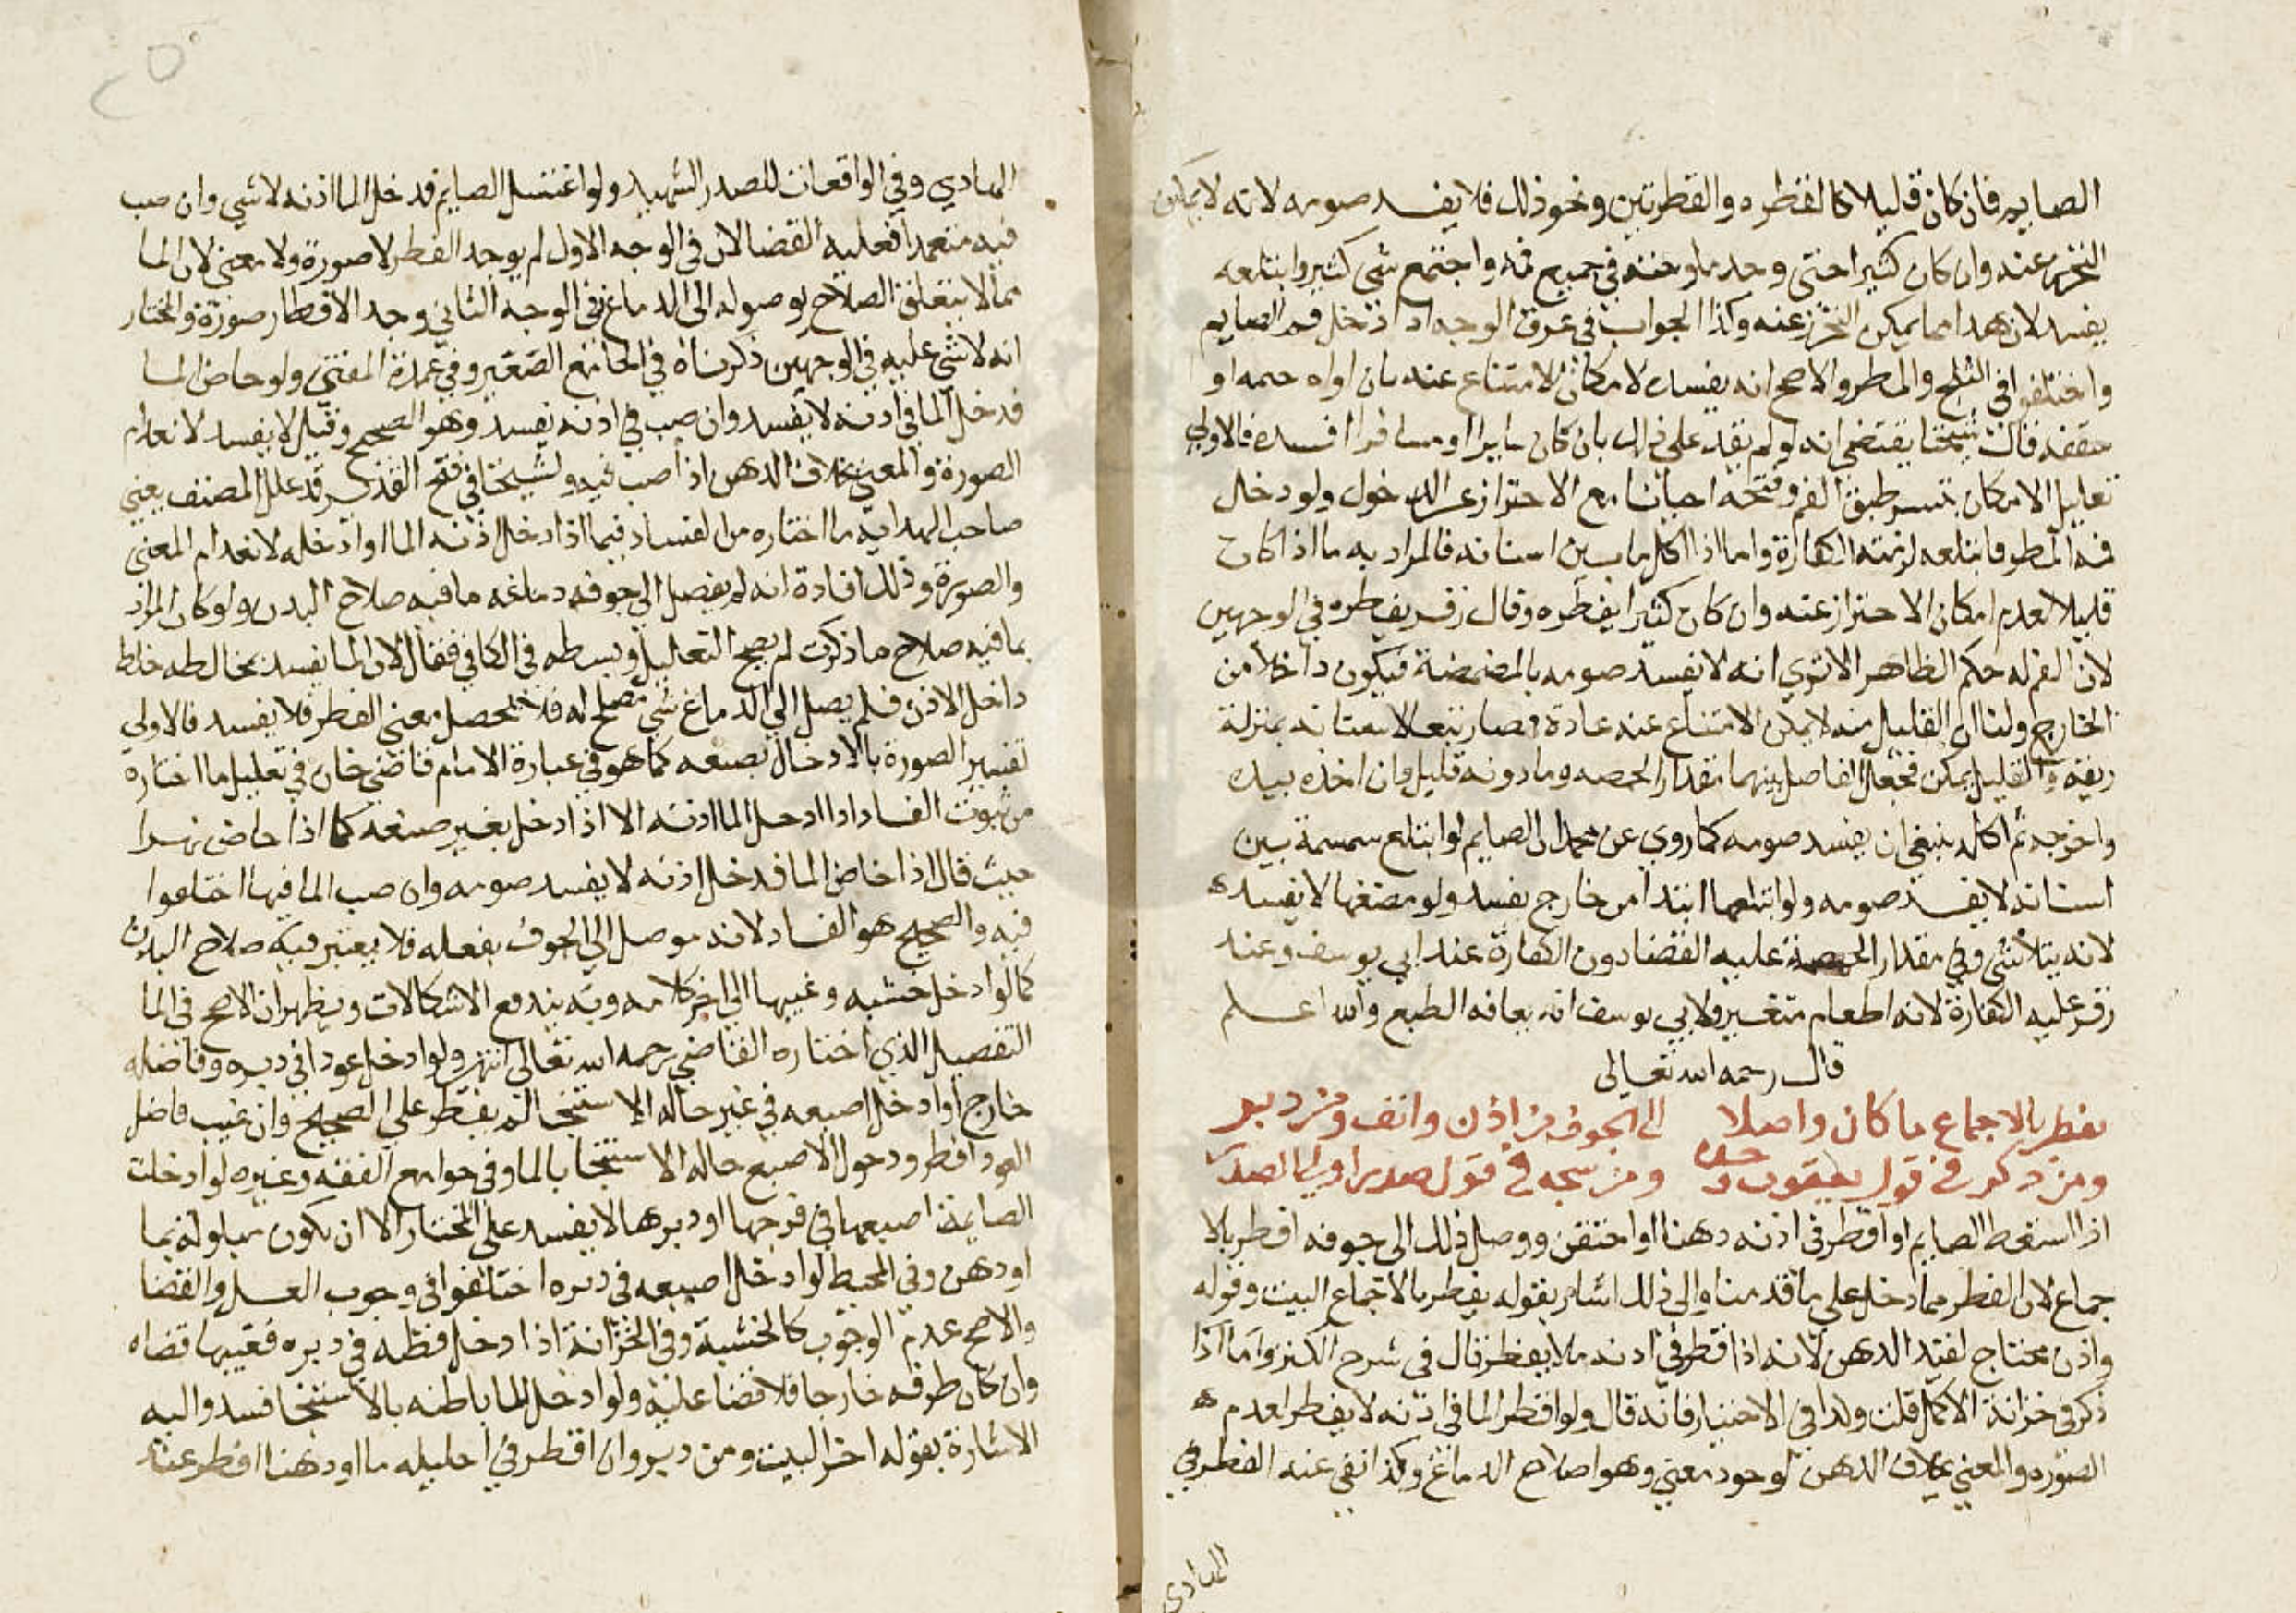 الصايم فان كان قليلا كالقطرة والقطرتين ونحو ذلك فلا يفسد صومه لانه لا يمكن
التحرز عنه وان كان كثيرا حتى وجد ملوحته في جميع فمه واجتمع شي كثير وابتلعه
يفسد لان هذا مما يمكن التحرز عنه وكذا الجواب في عرق الوجه اذا دخل فم الصايم
واختلفوا في الثلج والمطر والاصح انه يفسده لامكان الامتناع عنه بان اواه خيمه او
سقفه قال شيخنا يقتضي انه لو لم يقدر على ذلك بان كان سايرا او مسافرا افسده فالاولى
تعليل الامكان بتيسر طبق الفم وفتحه احيانا مع الاحتراز عن الدخول ولو دخل
فمه المطر فابتلعه لزمته الكفارة واما اذا اكل ما بين اسنانه فالمراد به ما اذا كان
قليلا لعدم امكان الاحتراز عنه وان كان كثيرا يفطره وقال زفر يفطره في الوجهين
لان الفم له حكم الظاهر الا ترى انه لا يفسد صومه بالمضمضة فيكون داخلا من
الخارج ولنا ان القليل منه لا يمكن الامتناع عنه عادة فصار تبعا لاسنانه بمنزلة
ريقه والقليل يمكن فجعل الفاصل بينهما مقدار الحمصه وما دونه قليل وان اخذه بيده
واخرجه ثم اكله ينبغي ان يفسد صومه كما روي عن محمد ان الصايم لو ابتلع سمسمة بين
اسنانه لا يفسد صومه ولو ابتلعها ابتدا من خارج يفسد ولو مضغها لا يفسد
لانه يتلاشى وفي مقدار الحمصة عليه القضا دون الكفارة عند ابي يوسف وعند
زفر عليه الكفارة لانه اطعام متغير ولابي يوسف انه يعافه الطبع والله اعلم
قال رحمه الله تعالى
يفطر بالاجماع ما كان واصلا الى الجوف من اذن وانف ومن دبر
ومن ذكر في قول يعقوب وحده ومن شجه في قول صدر اولي الصدر
اذا استعط الصايم او اقطر في اذنه دهنا او احتقن ووصل ذلك الى جوفه افطر بالا
جماع لان الفطر مما دخل على ما قدمنا والى ذلك اشار بقوله يفطر بالاجماع البيت وقوله
واذن محتاج لقيد الدهن لانه اذا قطر في اذنه ما لا يفطر قال في شرح الكنز واما اذا
ذكر في خزانة الاكمل قلت ولذا في الاختيار فانه قال ولو اقطر الما في اذنه لا يفطر لعدم
الصورة والمعنى بخلاف الدهن لوجود معنى وهو اصلاح الدماغ وكذا نفى عنه الفطر في
الهادي
الهادي وفي الواقعات للصدر الشهيد ولو اغتسل الصايم فدخل الما اذنه لا شي وان صب
فيه متعمدا فعليه القضا لان في الوجه الاول لم يوجد الفطر لا صورة ولا معنى لان الما
مما لا يتعلق الصلاح بوصوله الى الدماغ وفي الوجه الثاني وجد الافطار صورة والمختار
انه لا شي عليه في الوجهين ذكرناه في الجامع الصغير وفي عمدة المفتي ولو خاض الما
فدخل الما في اذنه لا يفسد وان صب في اذنه يفسد وهو الصحيح وقيل لا يفسد لانعدام
الصورة والمعنى بخلاف الدهن اذا صب فيه ولشيخنا في فتح القدير قد علل المصنف يعني
صاحب الهداية ما اختاره من الفساد فيما اذا دخل اذنه الما او ادخله لانعدام المعنى
والصورة وذلك افادة انه لم يصل الى جوفه دماغه ما فيه صلاح البدن ولو كان المراد
بما فيه صلاح ما ذكرت لم يصح التعليل وبسطه في الكافي فقال لان الما يفسد بمخالطه خلط
داخل الاذن فلم يصل الى الدماغ شي مصلح له فلا يحصل معنى الفطر فلا يفسد فالاولى
تفسير الصورة بالادخال بصنعه كما هو في عبارة الامام قاضي خان في تعليل ما اختاره
من ثبوت الفساد اذا ادخل الما اذنه الا اذا دخل بغير صنعه كما اذا خاض نهرا
حيث قال اذا خاض الما فدخل اذنه لا يفسد صومه وان صب الما فيها اختلفوا
فيه والصحيح هو الفساد لانه موصل الى الجوف بفعله فلا يعتبر فيه صلاح البدن
كما لو ادخل خشبه وغيبها الى اخر كلامه وبه يندفع الاشكالات ويظهر ان الاصح في الما
التفصيل الذي اختاره القاضي رحمه الله تعالى انتهى ولو ادخل عودا في دبره وفاضله
خارج او ادخل اصبعه في غير حالة الاستنجا لم يفطر على الصحيح وان غيب فاضل
العود افطر ودخول الاصبع حالة الاستنجا بالما وفي جوامع الفقه وغيره لو ادخلت
الصايمة اصبعها في فرجها او دبرها لا يفسد على المختار الا ان تكون مبلولة بما
او دهن وفي المحيط لو ادخل اصبعه في دبره اختلفوا في وجوب الغسل والقضا
والاصح عدم الوجوب كالخشبة وفي الخزانة اذا دخل قطنه في دبره فغيبها قضاه
وان كان طرفه خارجا فلا قضا عليه ولو ادخل الما باطنه بالاستنجا فسد واليه
الاشارة بقوله اخر البيت ومن دبر وان اقطر في احليله ما او دهنا افطر عند